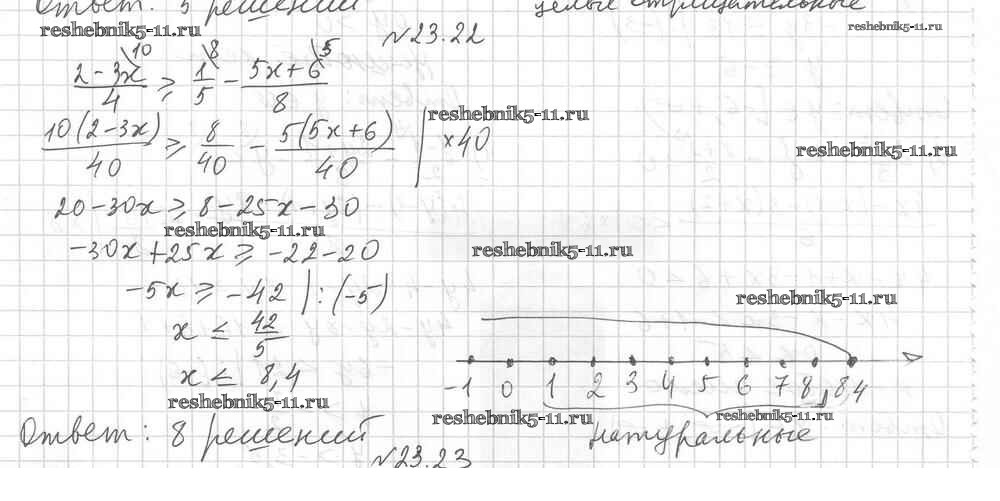 Ответ: 5 решений целые отрицательные
reshebnik5-11.ru reshebnik5-11.ru
N23.22
2-3x\10 / 4 ≥ 1\8 / 5 - 5x+6\5 / 8
reshebnik5-11.ru
10(2-3x) / 40 ≥ 8 / 40 - 5(5x+6) / 40 | ×40
reshebnik5-11.ru
20-30x ≥ 8-25x-30
reshebnik5-11.ru
-30x+25x ≥ -22-20
reshebnik5-11.ru
-5x ≥ -42 | : (-5)
reshebnik5-11.ru
x ≤ 42 / 5
x ≤ 8,4
-1 0 1 2 3 4 5 6 7 8 8,4
reshebnik5-11.ru
reshebnik5-11.ru reshebnik5-11.ru
Ответ: 8 решений натуральные
N23.23